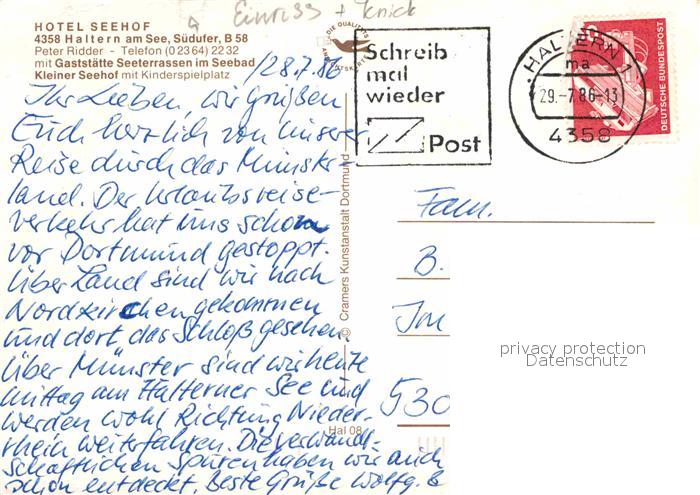 Einriss + Knick
HOTEL SEEHOF
4358 Haltern am See, Südufer, B 58
Peter Ridder - Telefon (0 23 64) 22 32
mit Gaststätte Seeterrassen im Seebad
Kleiner Seehof mit Kinderspielplatz
28.7.86
Ihr Lieben, wir grüßen
Euch herzlich von unserer
Reise durch das Münster-
land. Der Urlaubsreise-
verkehr hat uns schon
vor Dortmund gestoppt.
Über Land sind wir nach
Nordkirchen gekommen
und dort das Schloß gesehen.
Über Münster sind wir heute
mittag am Halterner See und
werden wohl Richtung Nieder-
rhein weiterfahren. Die verwandt-
schaftlichen Spuren haben wir auch
schon entdeckt. Beste Grüße Wolfg. &
© Cramers Kunstanstalt Dortmund
Hal 08
Schreib
mal
wieder
Post
HALTERN 1
ma
29.-7.86-13
4358
DEUTSCHE BUNDESPOST
Fam.
B.
Im
530
privacy protection
Datenschutz